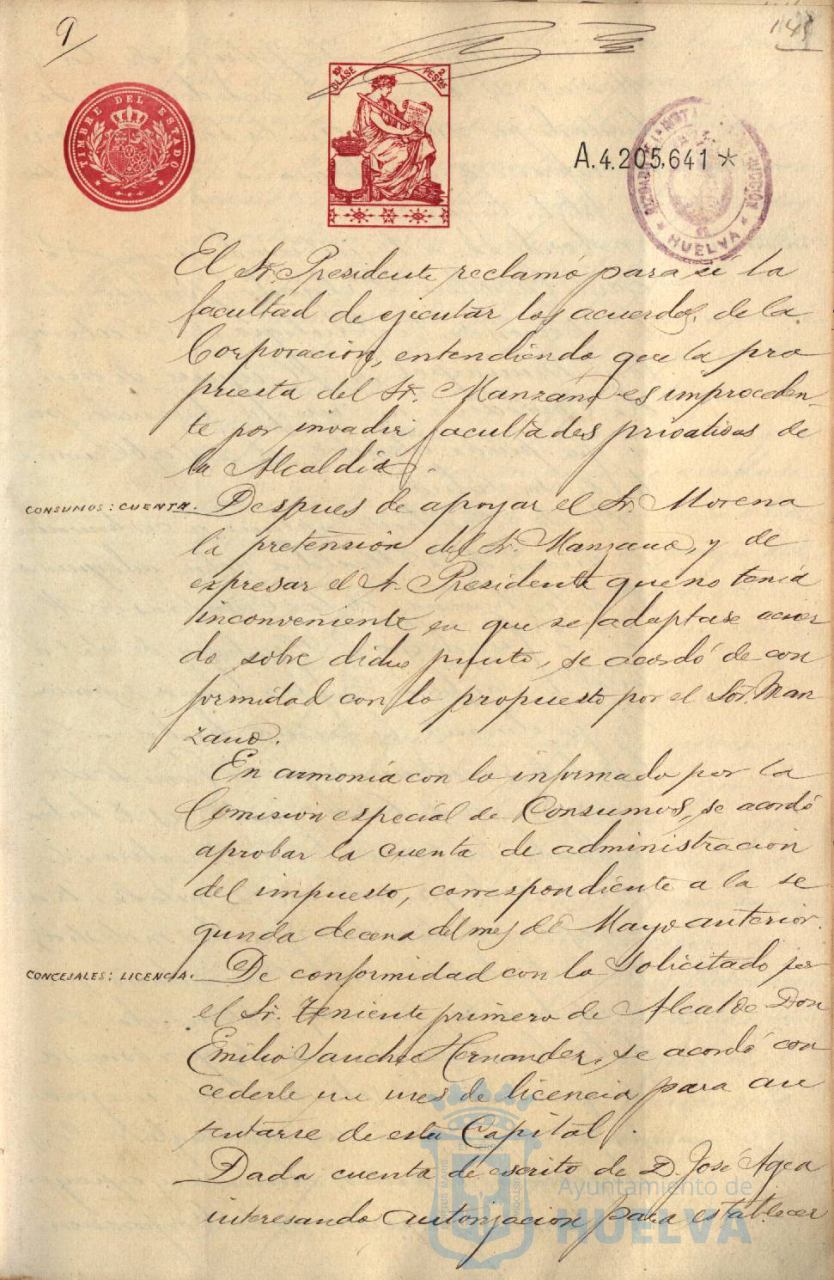 9
145
TIMBRE DEL ESTADO
10ª CLASE
2 PESETAS
A.4.205,641*
HUELVA
El Sr. Presidente reclamó para sí la
facultad de ejecutar los acuerdos de la
Corporación, entendiendo que la pro
puesta del Sr. Manzano es improceden-
te por invadir facultades privativas de
la Alcaldía.
CONSUMOS: CUENTA. Despues de apoyar el Sr. Morena
la pretensión del Sr. Manzano, y de
expresar el Sr. Presidente que no tenía
inconveniente en que se adaptase acuer
do sobre dicho punto, se acordó de con
formidad con lo propuesto por el Sor. Man
zano.
En armonía con lo informado por la
Comision especial de Consumos, se acordó
aprobar la cuenta de administracion
del impuesto, correspondiente a la se
gunda decena del mes de Mayo anterior.
CONCEJALES: LICENCIA. De conformidad con lo solicitado por
el Sr. Teniente primero de Alcalde Don
Emilio Sancho Hernandez, se acordó con
cederle un mes de licencia para au
sentarse de esta Capital.
Dada cuenta de escrito de D. José Agea
interesando autorizacion para establecer
Ayuntamiento de
HUELVA